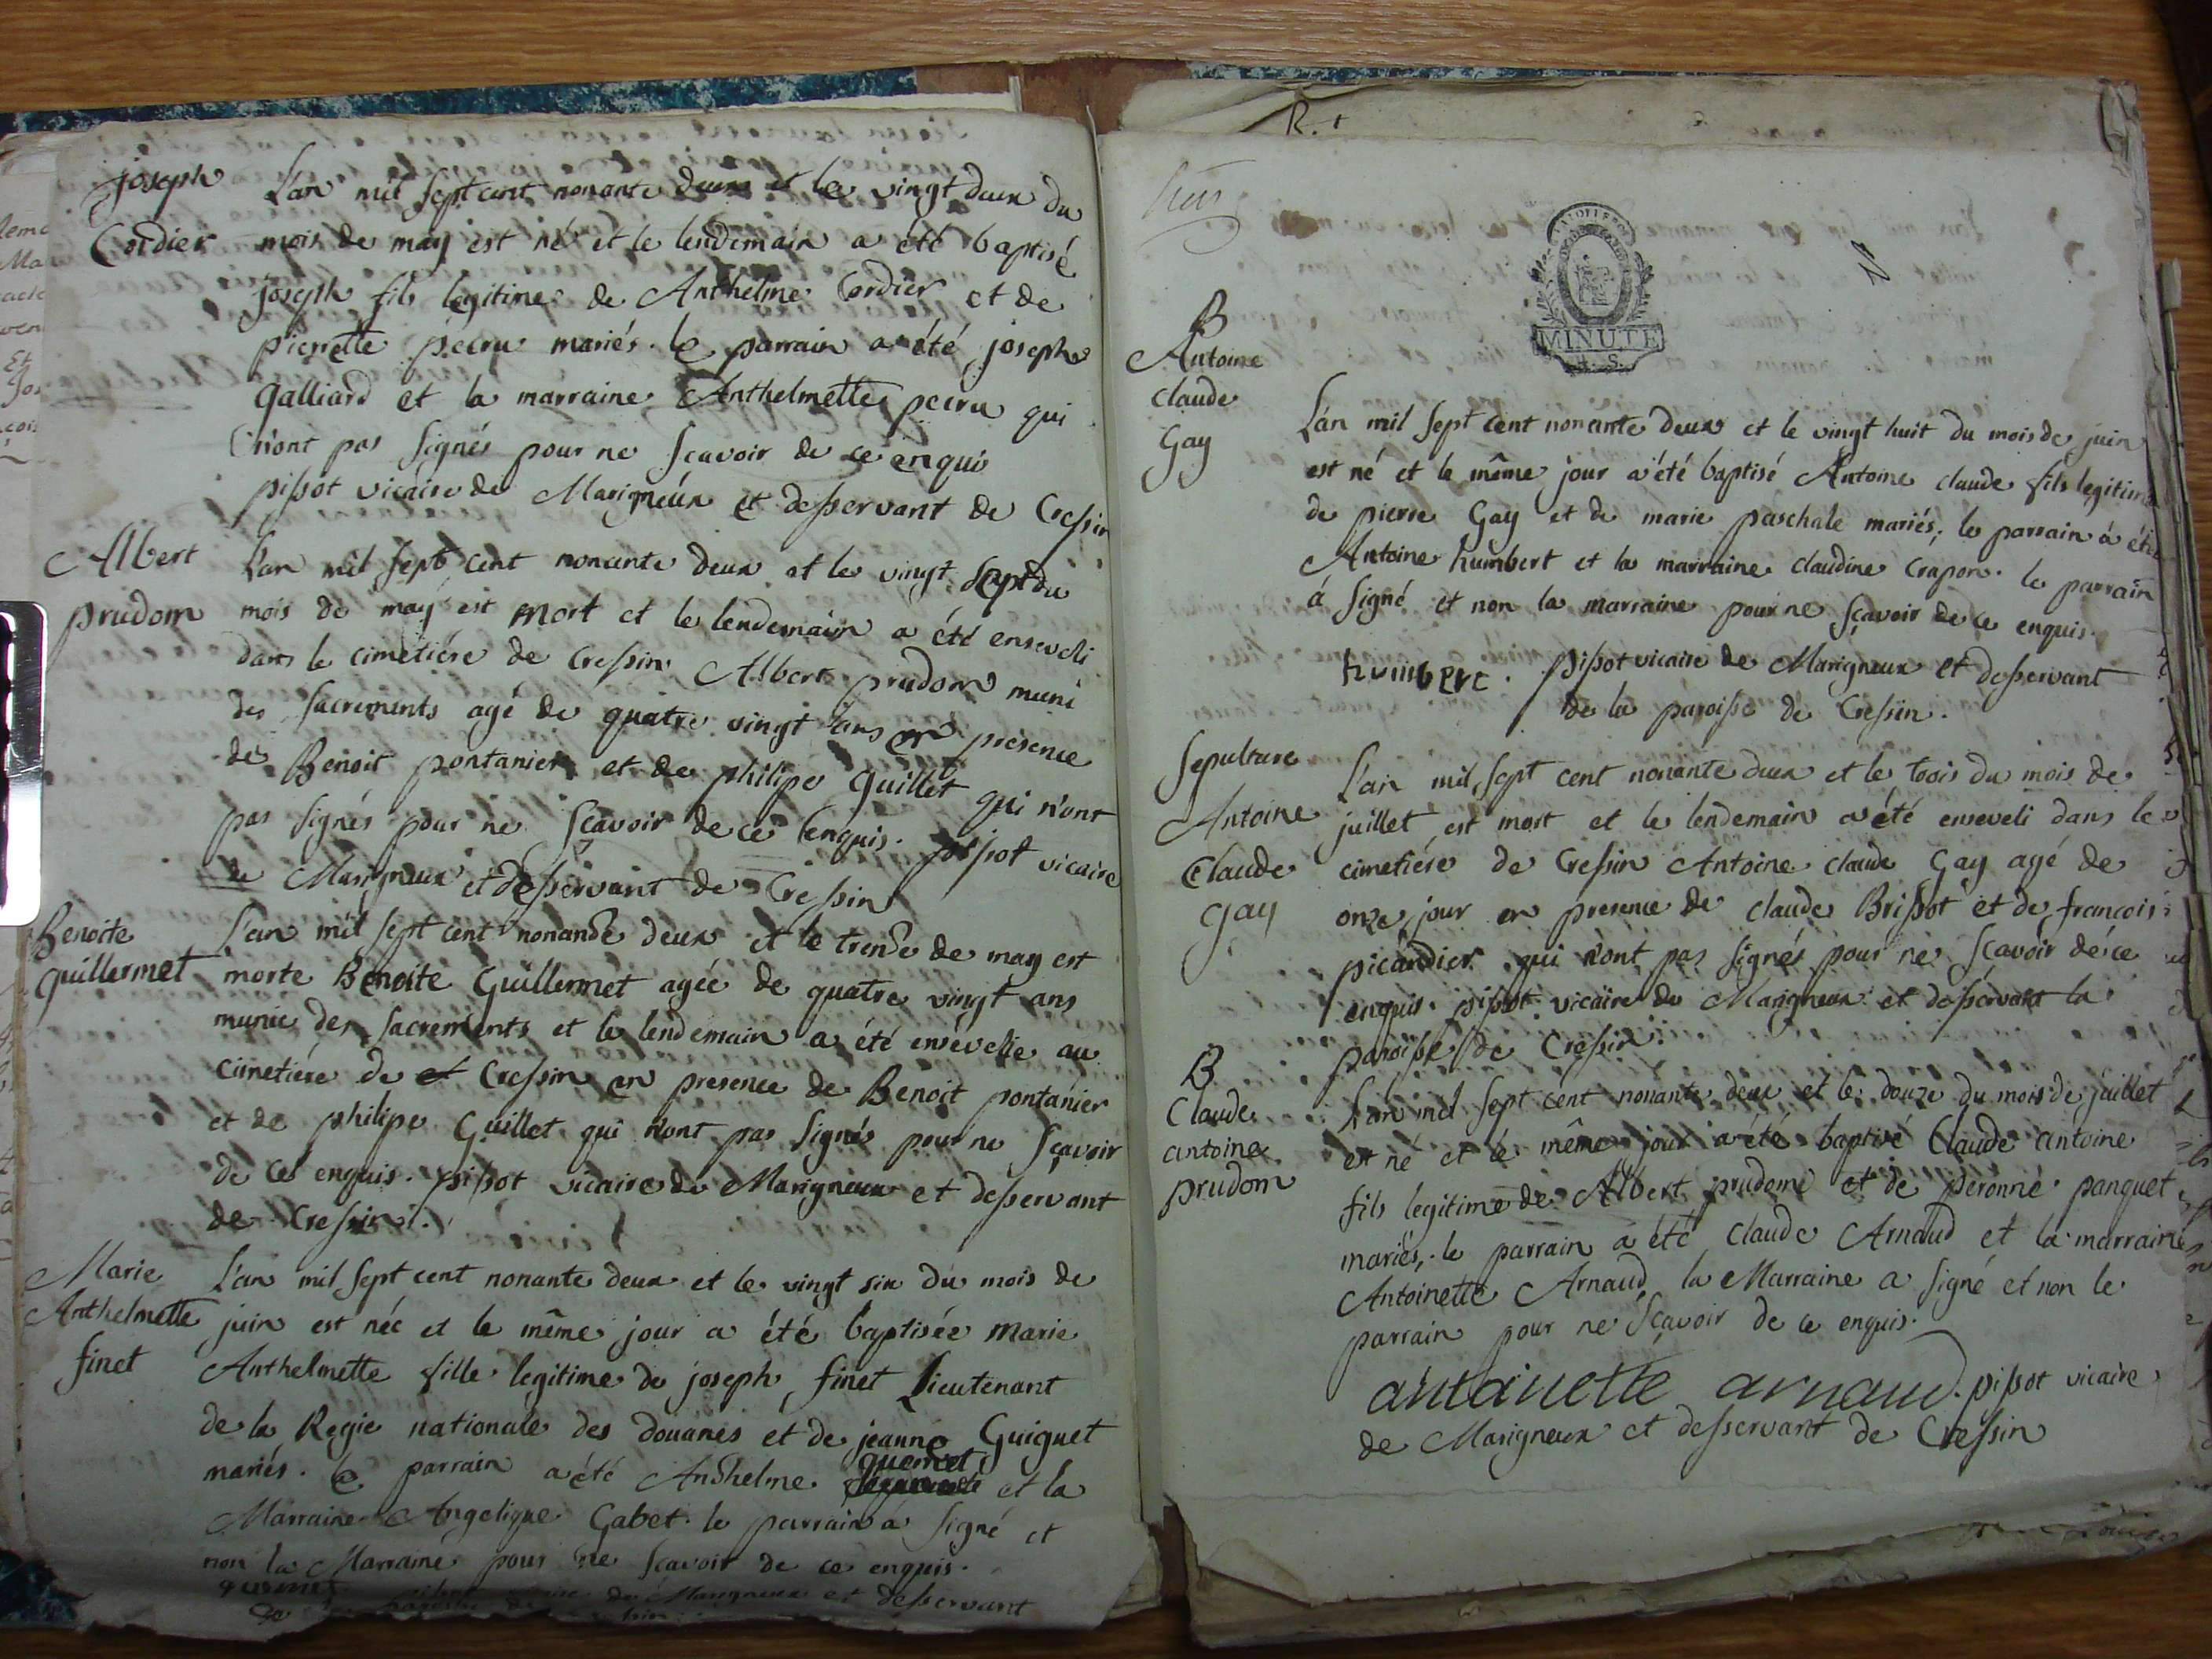 joseph
Cordier
L'an mil sept cent nonante deux et le vingt deux du
mois de may est né et le lendemain a été baptisé
joseph fils legitime de Anthelme Cordier et de
pierrette pecru mariés. le parrain a été joseph
Galliard et la marraine Anthelmette pecru qui
n'ont pas signés pour ne scavoir de ce enquis
pissot vicaire de Marigneux et desservant de Cressin
Albert
prudom
L'an mil sept cent nonante deux et le vingt sept du
mois de may est mort et le lendemain a été enseveli
dans le cimetiére de Cressin Albert prudom muni
des sacrements agé de quatre vingt ans en presence
de Benoit pontanier et de philipe Guillet qui n'ont
pas signés pour ne sçavoir de ce enquis. pissot vicaire
de Marigneux et desservant de Cressin
Benoite
guillermet
L'an mil sept cent nonante deux et le trente de may est
morte Benoite Guillermet agée de quatre vingt ans
munie des sacrements et le lendemain a été ensévelie au
cimetiére de et Cressin en presence de Benoit pontanier
et de philipe Guillet qui n'ont pas signés pour ne sçavoir
de ce enquis. pissot vicaire de Marigneux et desservant
de Cressin.
Marie
Anthelmette
finet
L'an mil sept cent nonante deux et le vingt six du mois de
juin est née et le même jour a été baptisée Marie
Anthelmette fille legitime de joseph finet Lieutenant
de la Regie nationale des douanes et de jeanne Guiguet
mariés. le parrain a été Anthelme quemet et la
Marraine Angelique Gabet. le parrain a signé et
non la Marraine pour ne scavoir de ce enquis.
quemet pissot vicaire de Marigneux et desservant
de la paroisse de Cressin
R. 1
MINUTE
4. S.
B
Antoine
claude
Gay
L'an mil sept cent nonante deux et le vingt huit du mois de juin
est né et le même jour a été baptisé Antoine claude fils legitime
de pierre Gay et de marie paschale mariés; le parrain a été
Antoine humbert et la marraine claudine Crapon. le parrain
á signé et non la marraine pour ne sçavoir de ce enquis.
humbert. pissot vicaire de Marigneux et desservant
de la paroisse de Cressin.
sepulture
Antoine
Claude
gay
L'an mil sept cent nonante deux et le trois du mois de
juillet est mort et le lendemain a été enseveli dans le
cimetiére de Cressin Antoine claude Gay agé de
onze jour en presence de claude Brissot et de francois
picardier qui n'ont pas signés pour ne scavoir de ce
enquis. pissot vicaire de Marigneux et desservant la
paroisse de Cressin.
B
Claude
antoine
prudom
L'an mil sept cent nonante deux et le douze du mois de juillet
est né et le même jour a été baptisé Claude antoine
fils legitime de Albert prudome et de peronne panquet
mariés,. le parrain a été claude Arnaud et la marraine
Antoinette Arnaud, la Marraine a signé et non le
parrain pour ne scavoir de ce enquis.
antoinette arnaud. pissot vicaire
de Marigneux et desservant de Cressin